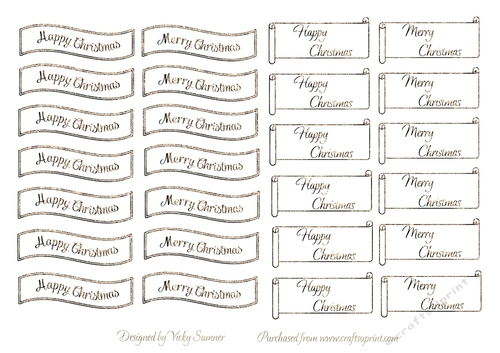 Happy Christmas
Merry Christmas
Happy
Christmas
Merry
Christmas
Happy Christmas
Merry Christmas
Happy
Christmas
Merry
Christmas
Happy Christmas
Merry Christmas
Happy
Christmas
Merry
Christmas
Happy Christmas
Merry Christmas
Happy
Christmas
Merry
Christmas
Happy Christmas
Merry Christmas
Happy
Christmas
Merry
Christmas
Happy Christmas
Merry Christmas
Happy
Christmas
Merry
Christmas
Happy Christmas
Merry Christmas
Happy
Christmas
Merry
Christmas
Designed by Vicky Sumner
Purchased from www.craftsuprint.com
craftsuprint